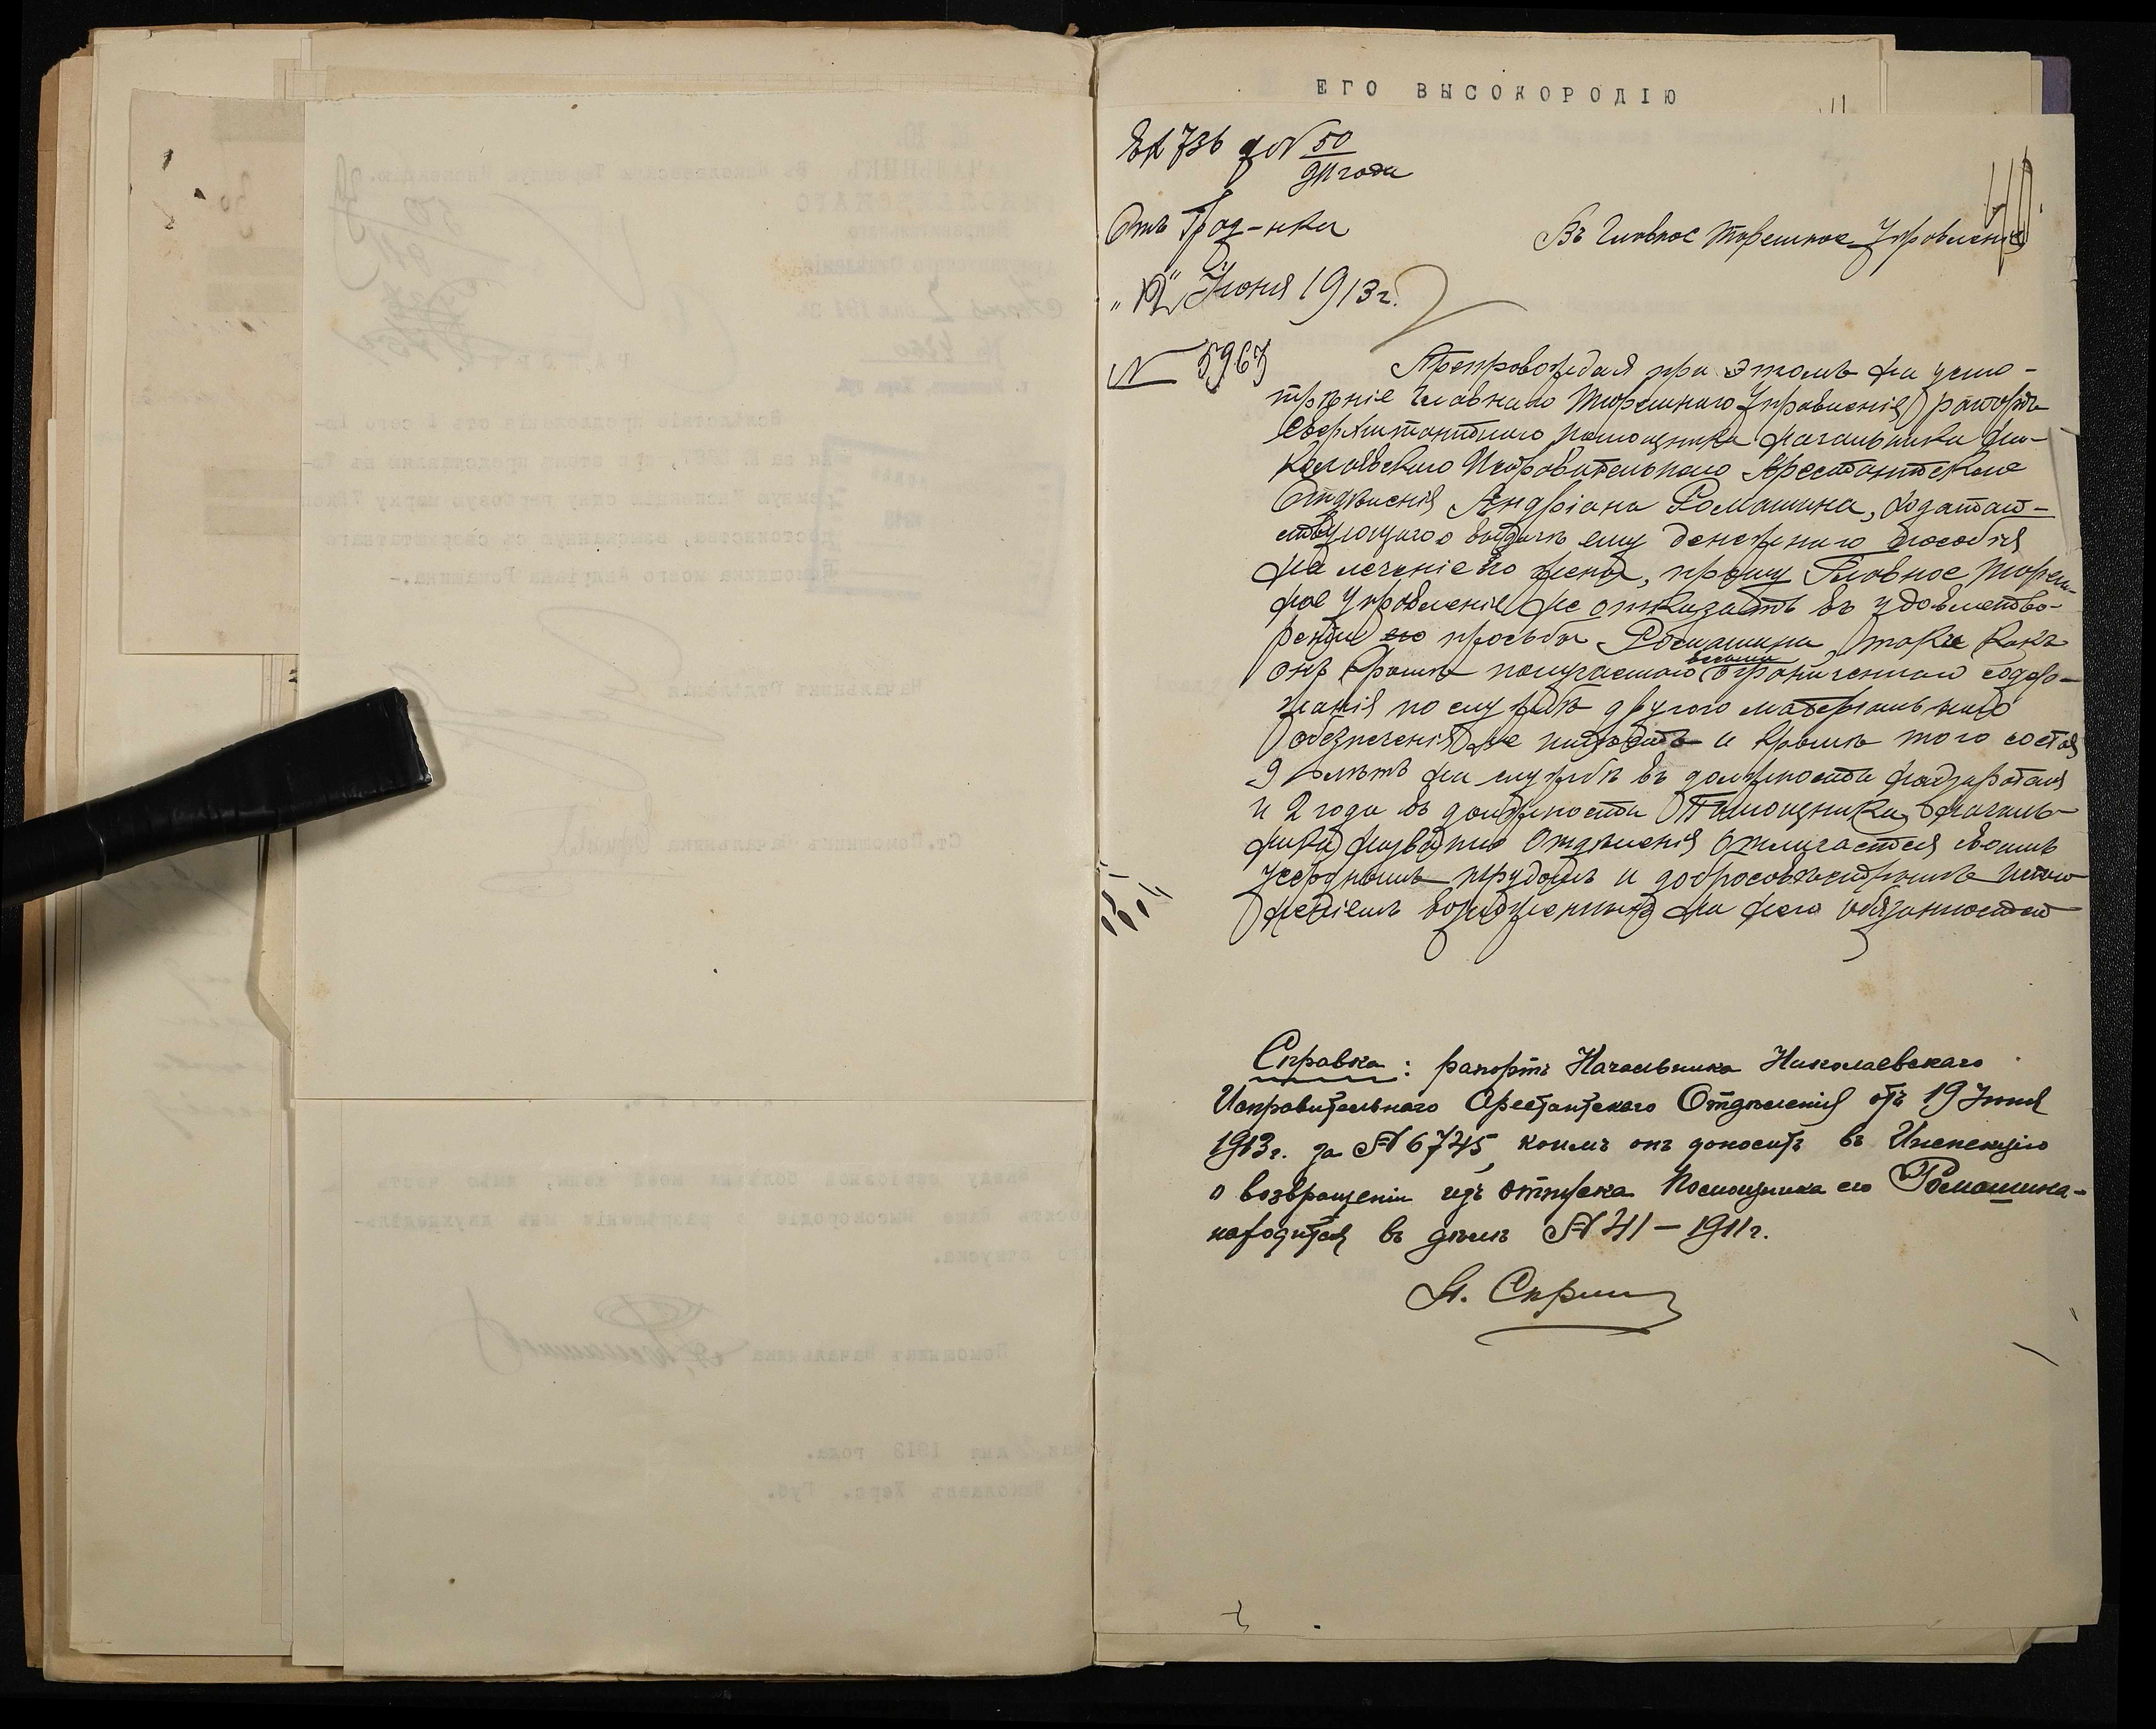 ЕГО ВЫСОКОРОДІЮ
736 50
911 года
Отъ Град-ка
Въ Главное Тюремное Управленіе
40.
"12" Іюня 1913 г.
N 5967
Препровождая при этомъ на усмо-
трѣніе Главнаго Тюремнаго Управленія рапортъ
Сверхштатнаго помощника Начальника Ни-
колаевскаго Исправительнаго Арестантскаго
Отдѣленія Андріана Ромашина, ходатай-
ствующаго о выдачѣ ему денежнаго пособія
на леченіе жены, прошу Главное Тюрем-
ное Управленіе не отказать въ удовлетво-
реніи просьбы Ромашина, такъ какъ
онъ кромѣ получаемаго весьма ограниченнаго содер-
жанія по службѣ другого матеріальнаго
обезпеченія не имѣетъ и кромѣ того состоя
9 лѣтъ на службѣ въ должности надзирателя
и 2 года въ должности Помощника Началь-
ника названнаго Отдѣленія отличается своимъ
усерднымъ трудомъ и добросовѣстнымъ испол
неніемъ возложенныхъ на него обязанностей
Справка: рапортъ Начальника Николаевскаго
Исправительнаго Арестантскаго Отдѣленія отъ 19 Іюня
1913 г. за N 6745, коимъ онъ доноситъ въ Инспекцію
о возвращеніи изъ отпуска Помощника его Ромашина-
находится въ дѣлѣ N 41 — 1911 г.